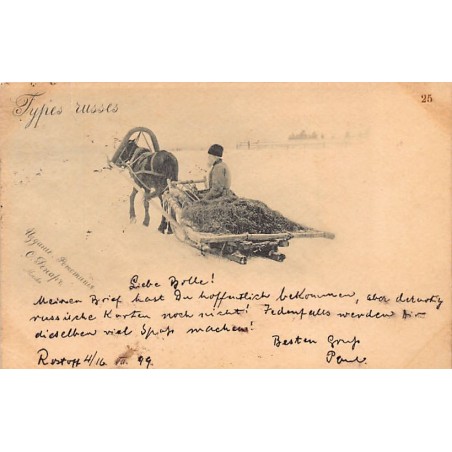 Types russes
25
Изданіе Фототипія
О. Ренаръ
Liebe Bolle!
Meinen Brief hast Du hoffentlich bekommen, aber derartig
russische Karten noch nicht! Jedenfalls werden
dieselben viel Spaß machen!
Besten Gruß
Rostoff 4/16 99 Paul